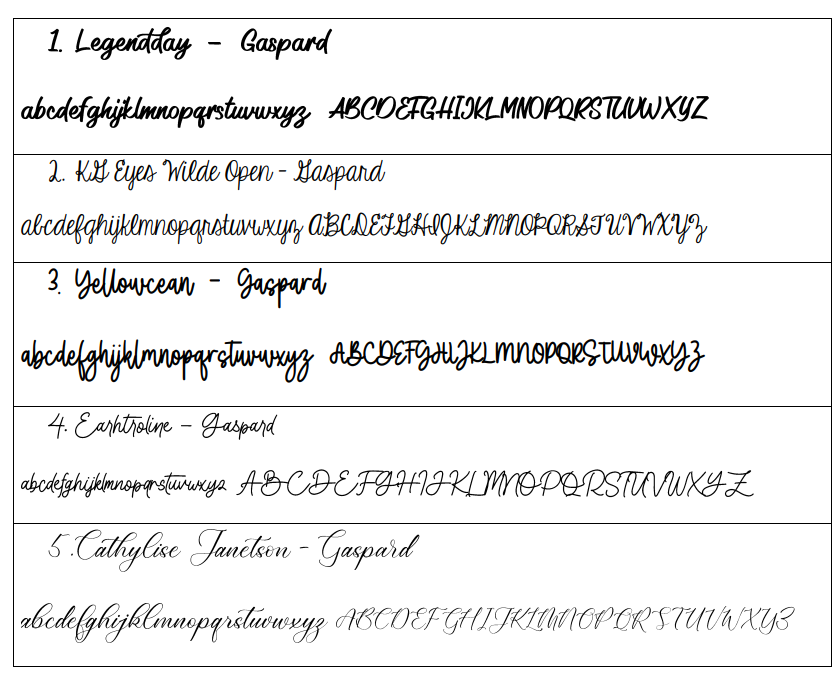 1. Legendday - Gaspard
abcdefghijklmnopqrstuvwxyz ABCDEFGHIJKLMNOPQRSTUVWXYZ
2. KG Eyes Wilde Open - Gaspard
abcdefghijklmnopqrstuvwxyz ABCDEFGHIJKLMNOPQRSTUVWXYZ
3. Yellowcean - Gaspard
abcdefghijklmnopqrstuvwxyz ABCDEFGHIJKLMNOPQRSTUVWXYZ
4. Earhtroline - Gaspard
abcdefghijklmnopqrstuvwxyz ABCDEFGHIJKLMNOPQRSTUVWXYZ
5. Cathylise Janetson - Gaspard
abcdefghijklmnopqrstuvwxyz ABCDEFGHIJKLMNOPQRSTUVWXYZ